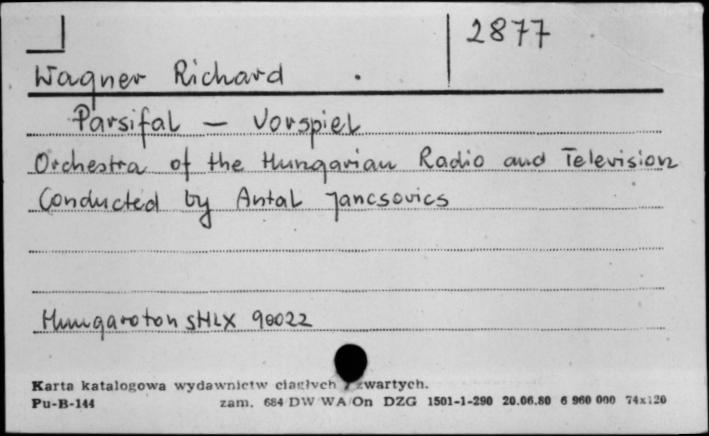 2877
Wagner Richard
Parsifal — Vorspiel
Orchestra of the Hungarian Radio and Television
Conducted by Antal Jancsovics
Hungaroton SHLX 90022
Karta katalogowa wydawnictw ciągłych i zwartych.
Pu-B-144 zam. 684 DW WA/On DZG 1501-1-290 20.06.80 6 960 000 74x120